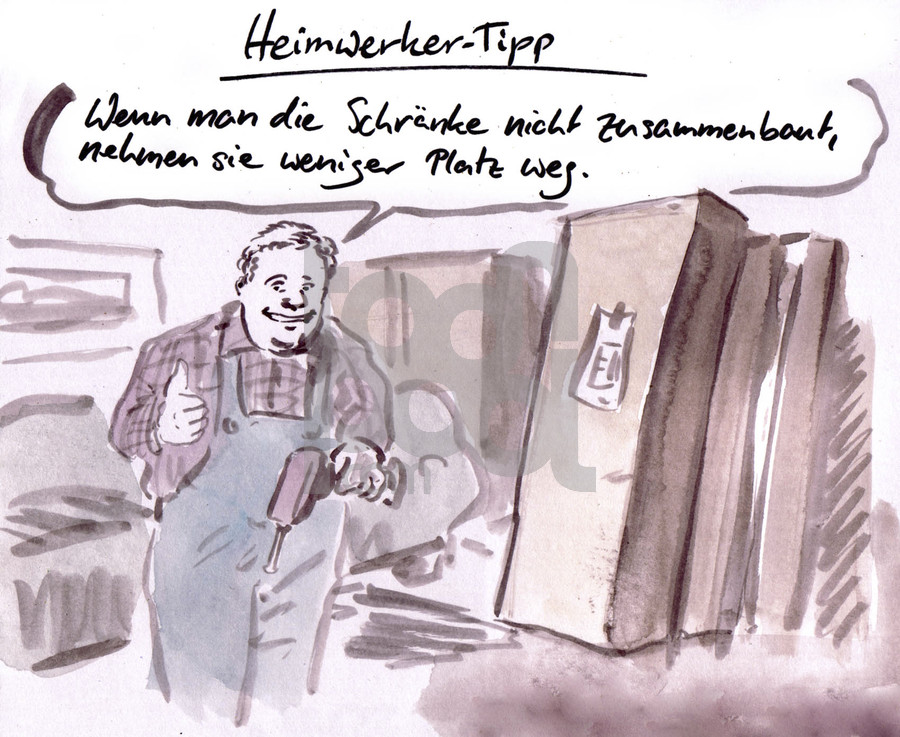 Heimwerker-Tipp
Wenn man die Schränke nicht zusammenbaut,
nehmen sie weniger Platz weg.
toonpool
.com